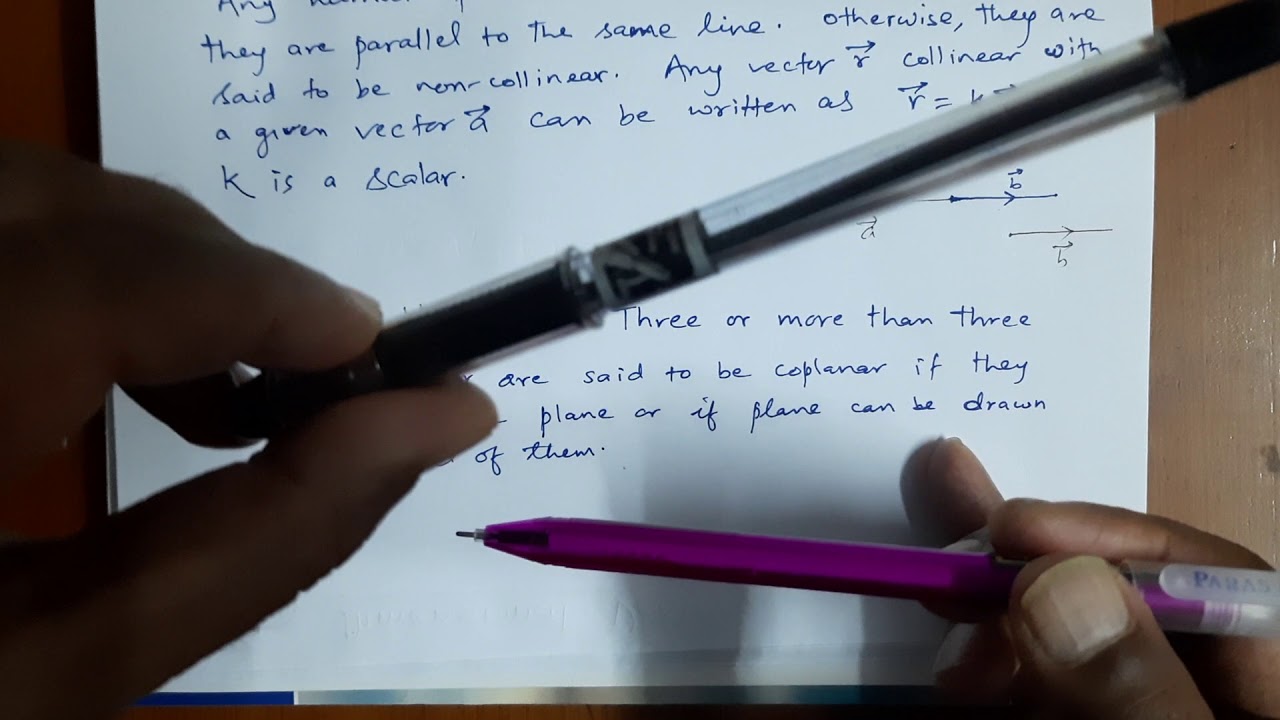 Any
they are parallel to the same line. Otherwise, they are
said to be non-collinear. Any vector r⃗ collinear with
a given vector a⃗ can be written as r⃗ = k
k is a scalar.
b⃗
a⃗
b⃗
Three or more than three
are said to be coplanar if they
plane or if plane can be drawn
of them.
PARAS